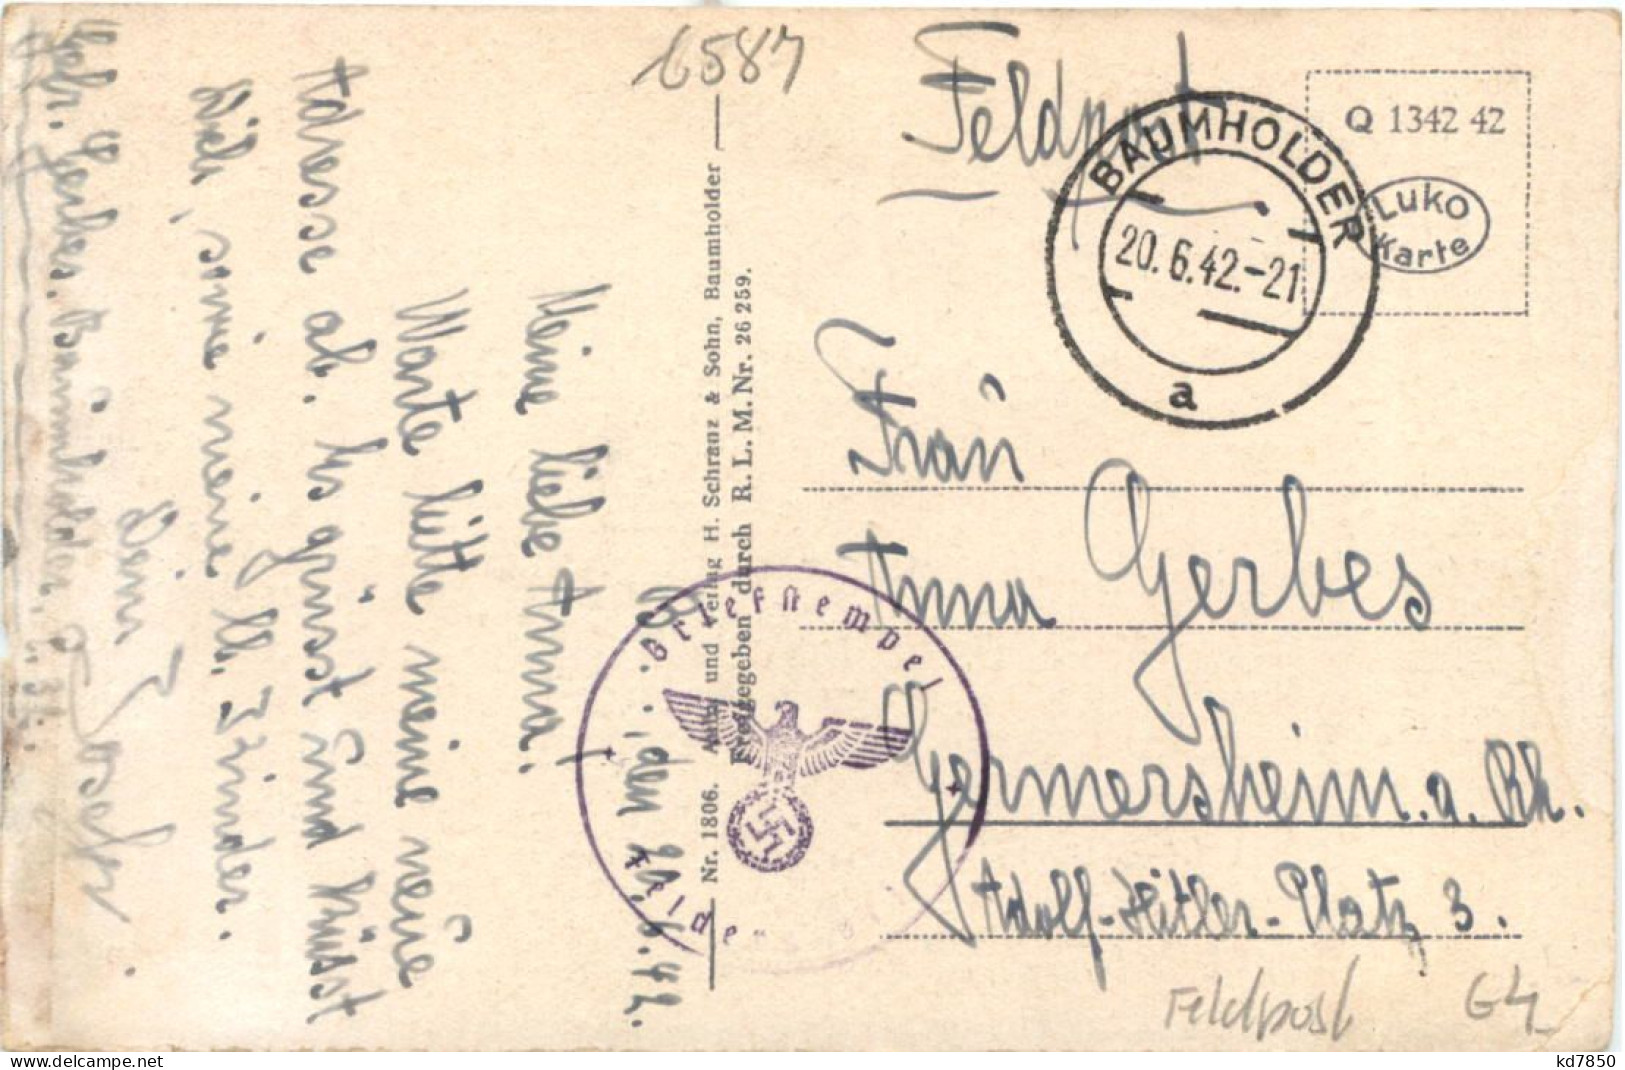 6587
Feldpost
BAUMHOLDER
20.6.42.-21
a
Q 1342 42
Luko
Karte
Frau
Anna Gerbes
Germersheim a. Rh.
Adolf-Hitler-Platz 3.
Feldpost
G4
Nr. 1806. und Verlag H. Schranz & Sohn, Baumholder
Freigegeben durch R. L. M. Nr. 26 259.
Briefstempel
, den 20.6.42.
Meine liebe Anna!
Warte bitte meine neue
Adresse ab. Es grüsst und küsst
Dich, sowie meine ll. 3 Kinder.
Dein
Josef
Gerbes, Baumholder,
kd7850